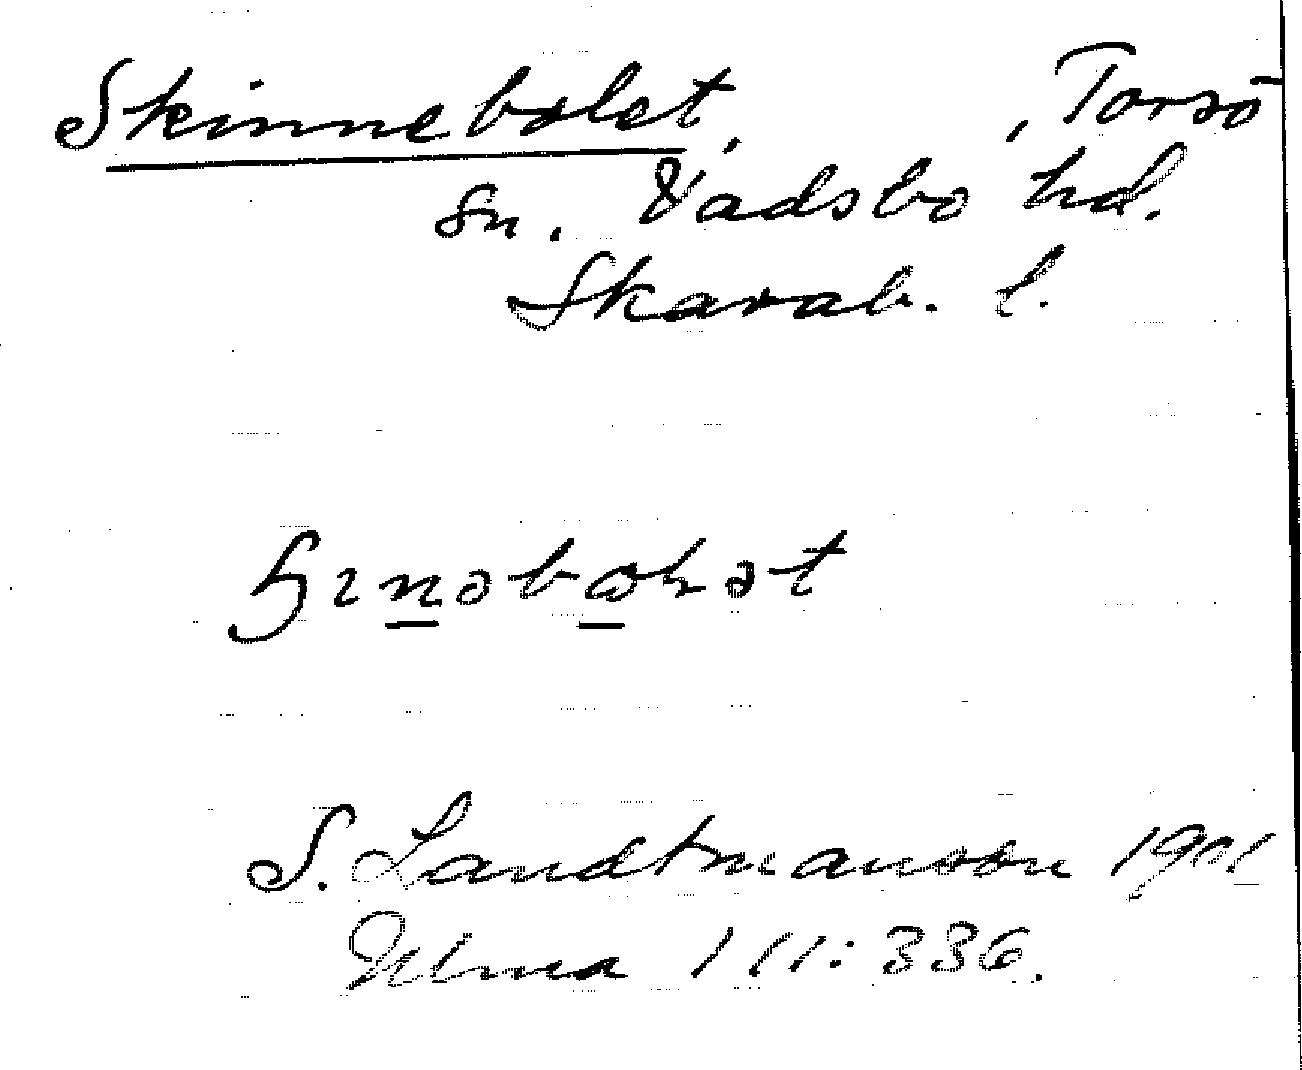 Skinnebolet, , Torsö
sn. Vadsbo hd.
Skarab. l.
S. Landtmanson 1901
Ulma 111:336.